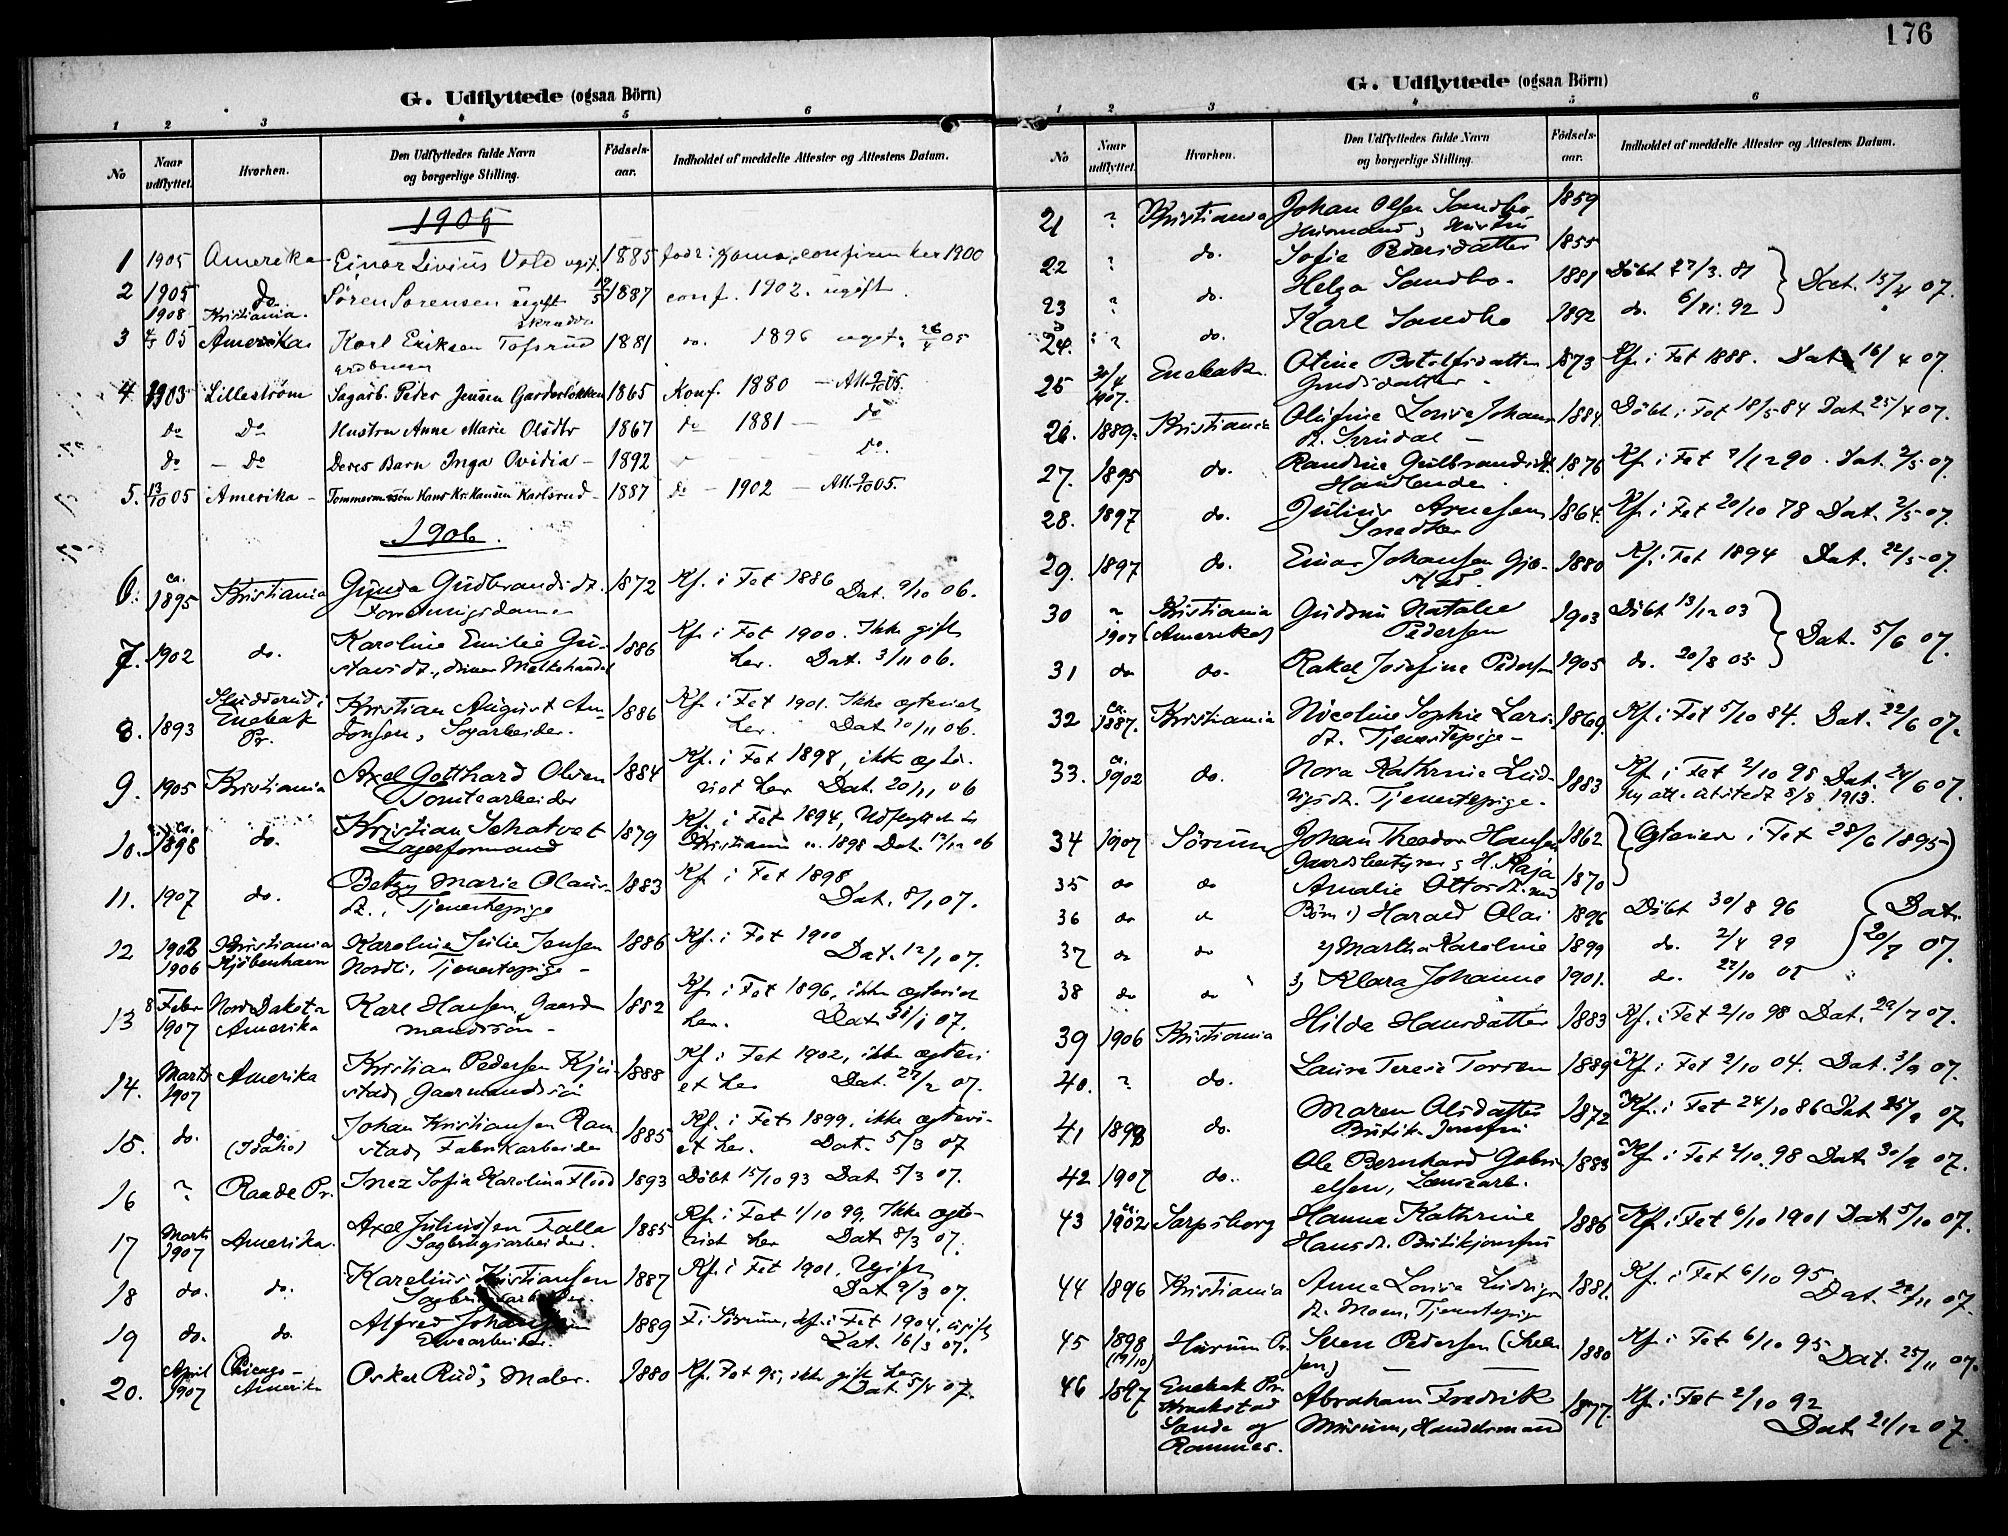 176
G. Udflyttede (ogsaa Börn)
1 2 3 4 5 6
No
Naar udflyttet.
Hvorhen.
Den Udflyttedes fulde Navn og borgerlige Stilling.
Födsels-aar.
Indholdet af meddelte Attester og Attestens Datum.
1905
1 1905 Amerika Einar Livius Vold ugift. 1885 confirm her 1900
2 1905 do Sören Sörensen ugift 12/5 1887 conf. 1902. ugift.
1908 Kristiania.
3 4/5 05 Amerika Karl Eriksen Tofsrud 1881 do. 1896 ugift 26/4 05
4 1903 Lilleström Sagarb. Peder Jensen Garderløkken 1865 Konf. 1880 – Att.
do Do Hustru Anne Marie Olsdtr 1867 do 1881 – do
do – Do Deres Barn Inga Ovidia – 1892 do.
5. 13/10 05 Amerika – Tømmermansøn Hans Kr. Hansen Karlsrud – 1887 do – 1902 – Att. 05.
1906.
6. ca. 1895 Kristiania Gunda Gudbrandsdt. 1872 Kf. i Fet 1886
Forretningsdame Dat. 9/10 06.
7. 1902 do. Karoline Emilie Gu- 1886 Kf. i Fet 1900. Ikke gift
stavsdt., driver Melkehandel her. Dat. 3/11 06.
8. 1893 Enebak Pr. Kristian August An- 1886 Kf. i Fet 1901. Ikke ægteviet
tonsen, Sagarbeider. her. Dat 10/11 06.
9. 1905 Kristiania Axel Gotthard Olsen 1884 Kf. i Fet 1898, ikke ægte-
Tomtearbeider viet her Dat. 20/11 06
10. ca. 1898 do. Kristian Schatvet 1879 Kf. i Fet 1894, Udflyttet til
Lagerformand Kristiania 1898 Dat. 13/12 06
11. 1907 do. Betzy Marie Olaus- 1883 Kf. i Fet 1898
dt., Tjenestepige Dat. 8/1 07.
12 1902 Kristiania Karoline Julie Jensen 1886 Kf. i Fet 1900
1906 Kjöbenhavn Nordli, Tjenestepige – Dat. 12/1 07.
13 8 Febr 1907 Nord Dakota Amerika Karl Hansen, Gaard- 1882 Kf. i Fet 1896, ikke ægteviet
mandssön – her. Dat 31/1 07.
14. Marts 1907 Amerika Kristian Pedersen Kju- 1888 Kf. i Fet 1902, ikke ægtevi-
stad, Gaarmandssön et her Dat. 27/2 07.
15. do. do. (Idaho) Johan Kristiansen Ram- 1885 Kf. i Fet 1899, ikke ægtevi-
stad, Fabrikarbeider et her. Dat. 5/3 07
16 ? Raade Pr. Inez Sofie Karolina Flood 1893 Döbt 15/10 93 Dat 5/3 07.
17 Marts 1907 Amerika. Axel Juliussen Falla 1885 Kf. i Fet 1/10 99, Ikke ægte-
Sagbrugsarbeider. viet her Dat 8/3 07.
18 do. do. Karelius Kristiansen 1887 Kf. i Fet 1901. Ugift
Dat 9/3 07.
19 do. do. Alfred Johansen 1889 F. i Sörum, kf. i Fet 1904, ugift
Elvearbeider. Dat. 16/3 07.
20. April 1907 Chicago – Amerika Oskar Rud, Maler. 1880 Kf. Fet 95, ikke gift her
Dat 5/4 07.
G. Udflyttede (ogsaa Börn)
1 2 3 4 5 6
No
Naar udflyttet.
Hvorhen.
Den Udflyttedes fulde Navn og borgerlige Stilling.
Födsels-aar.
Indholdet af meddelte Attester og Attestens Datum.
21 ? Kristiania Johan Olsen Sandbo 1859
Husmand, Hustru
22 ? do. Sofie Pedersdatter 1855
23 ? do. Helga Sandbo. 1881 Döbt 27/3. 81 Dat. 15/4 07.
24. ? do. Karl Sandbo 1892 do. 6/11. 92
25 30/4 1907. Enebak. Otine Botolfsdatter 1873 Kf. i Fet 1888. Dat. 16/4 07.
26. 1889. Kristiania Olufine Lovise Johans- 1884 Döbt i Fet 18/5 84 Dat 25/4 07.
27. 1895 do. Randine Gulbrandsdt. 1876 Kf. i Fet 90. Dat. 2/5 07.
Handlende.
28. 1897 do. Julius Arnesen 1864. Kf. i Fet 20/10 78 Dat. 2/5 07.
Snedker
29. 1897 do. Einar Johansen Gjö- 1880 Kf. i Fet 1894 Dat. 22/5 07.
30 ? 1907 Kristiania (Amerika) Gudrun Natalie 1903 Döbt 13/12 03
Pedersen Dat. 5/6 07.
31 do do. Rakel Josefine Pedersen 1905 do. 20/8 05
32 ca. 1887. Kristiania Nicoline Sophie Lars- 1869. Kf. i Fet 5/10 84. Dat. 22/6 07.
dt. Tjenestepige –
33. ca. 1902 do. Nora Kathrine Lud- 1883 Kf. i Fet 2/10 98 Dat. 24/6 07.
vigsdt. Tjenestepige. Ny att. utstedt 8/8 1913.
34 1907 Sörum Johan Theodor Hansen 1862 (Gteviet i Fet 28/6 1895)
Gaardsbestyrer, H. Maja
35 do do Amalie Ottosdt. 1870
36 do do Börn 1) Harald Olai 1896 Döbt 30/8 96 Dat.
37 do do 2) Martha Karoline 1899 do. 2/4 99 20/7 07.
38 do do 3) Klara Johanne 1901. do. 27/10 01
39 1906 Kristiania Hilda Hansdatter 1883 Kf. i Fet 2/10 98 Dat. 29/7 07.
40. ? do. Laura Teresie Torsen 1889 Kf. i Fet 2/10 04. Dat. 3/9 07.
41 1898 do. Maren Olsdatter 1872 Kf. i Fet 24/10 86 Dat 07.
Butikjomfru
42 1907 do. Ole Bernhard Gabri- 1883 Kf. i Fet 2/10 98 Dat 30/9 07.
elsen,
43 ca. 1902 Sarpsborg Hanna Kathrine 1886 Kf. i Fet 6/10 1901 Dat 5/10 07.
Hansdt. Butikjomfru
44 1896 Kristiania Anna Lovise Ludvigs- 1881. Kf. i Fet 6/10 95
dt. Moen, Tjenestepige Dat. 20/11 07.
45 1898 (14/10) Hurum Pr. Sven Pedersen 1880 Kf. i Fet 6/10 95
Dat. 25/11 07.
46 1897 Enebak Pr. Abraham Fredrik 1877. Kf. i Fet 2/10 92
Sande og Rammes. Mursum, Handelsmand Dat 21/12 07.